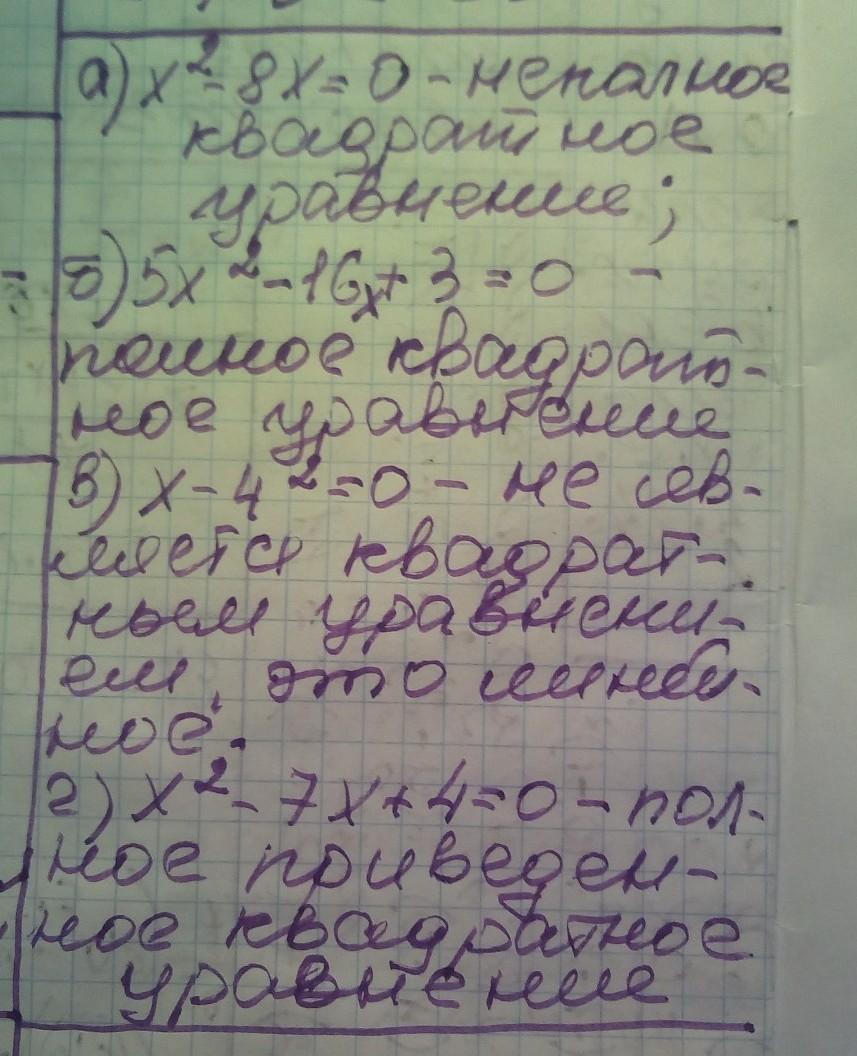 а) x² - 8x = 0 - неполное
квадратное
уравнение;
б) 5x² - 16x + 3 = 0 -
полное квадрат-
ное уравнение
в) x - 4² = 0 - не яв-
ляется квадрат-
ным уравнени-
ем, это линей-
ное.
г) x² - 7x + 4 = 0 - пол-
ное приведен-
ное квадратное
уравнение